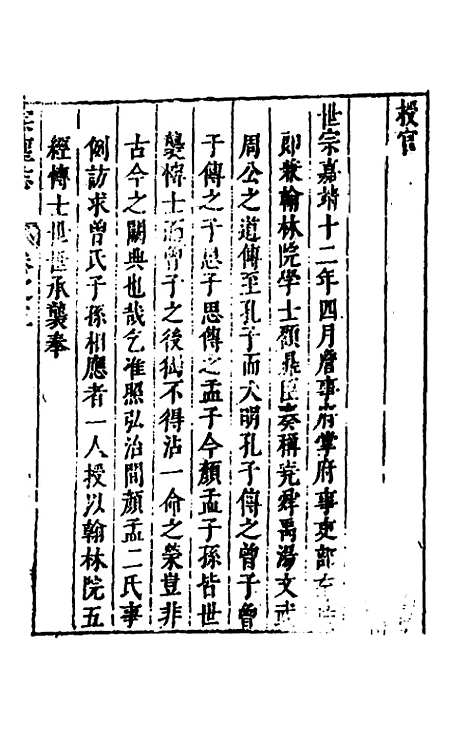 授官
世宗嘉靖十二年四月詹事府掌府事吏部左侍
郎兼翰林院學士顧鼎臣奏稱堯舜禹湯文武
周公之道傳至孔子而大明孔子傳之曾子曾
子傳之子思子思傳之孟子今顏孟子孫皆世
襲博士而曾子之後獨不得沾一命之榮豈非
古今之闕典也哉乞准照弘治間顏孟二氏事
例訪求曾氏子孫相應者一人授以翰林院五
經博士世世承襲奉
宗聖志 卷之三